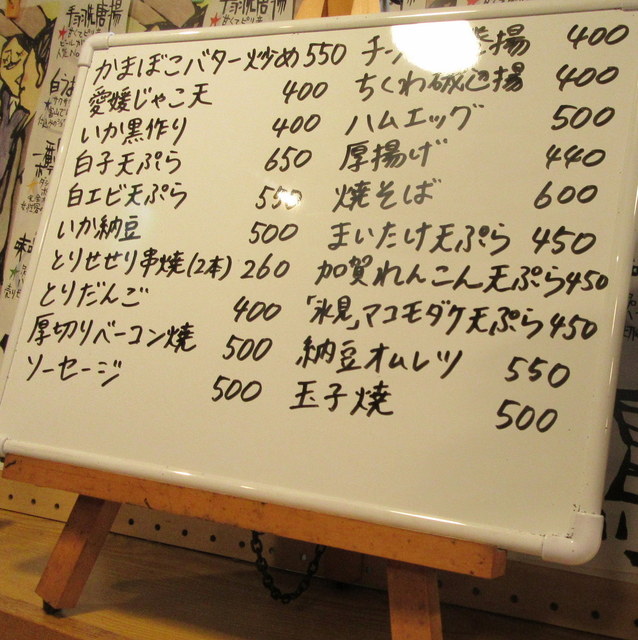 かまぼこバター炒め 550
愛媛じゃこ天 400
いか黒作り 400
白子天ぷら 650
白エビ天ぷら 550
いか納豆 500
とりせせり串焼(2本) 260
とりだんご 400
厚切りベーコン焼 500
ソーセージ 500
揚 400
ちくわ磯辺揚 400
ハムエッグ 500
厚揚げ 440
焼そば 600
まいたけ天ぷら 450
加賀れんこん天ぷら 450
「氷見」マコモダケ天ぷら 450
納豆オムレツ 550
玉子焼 500